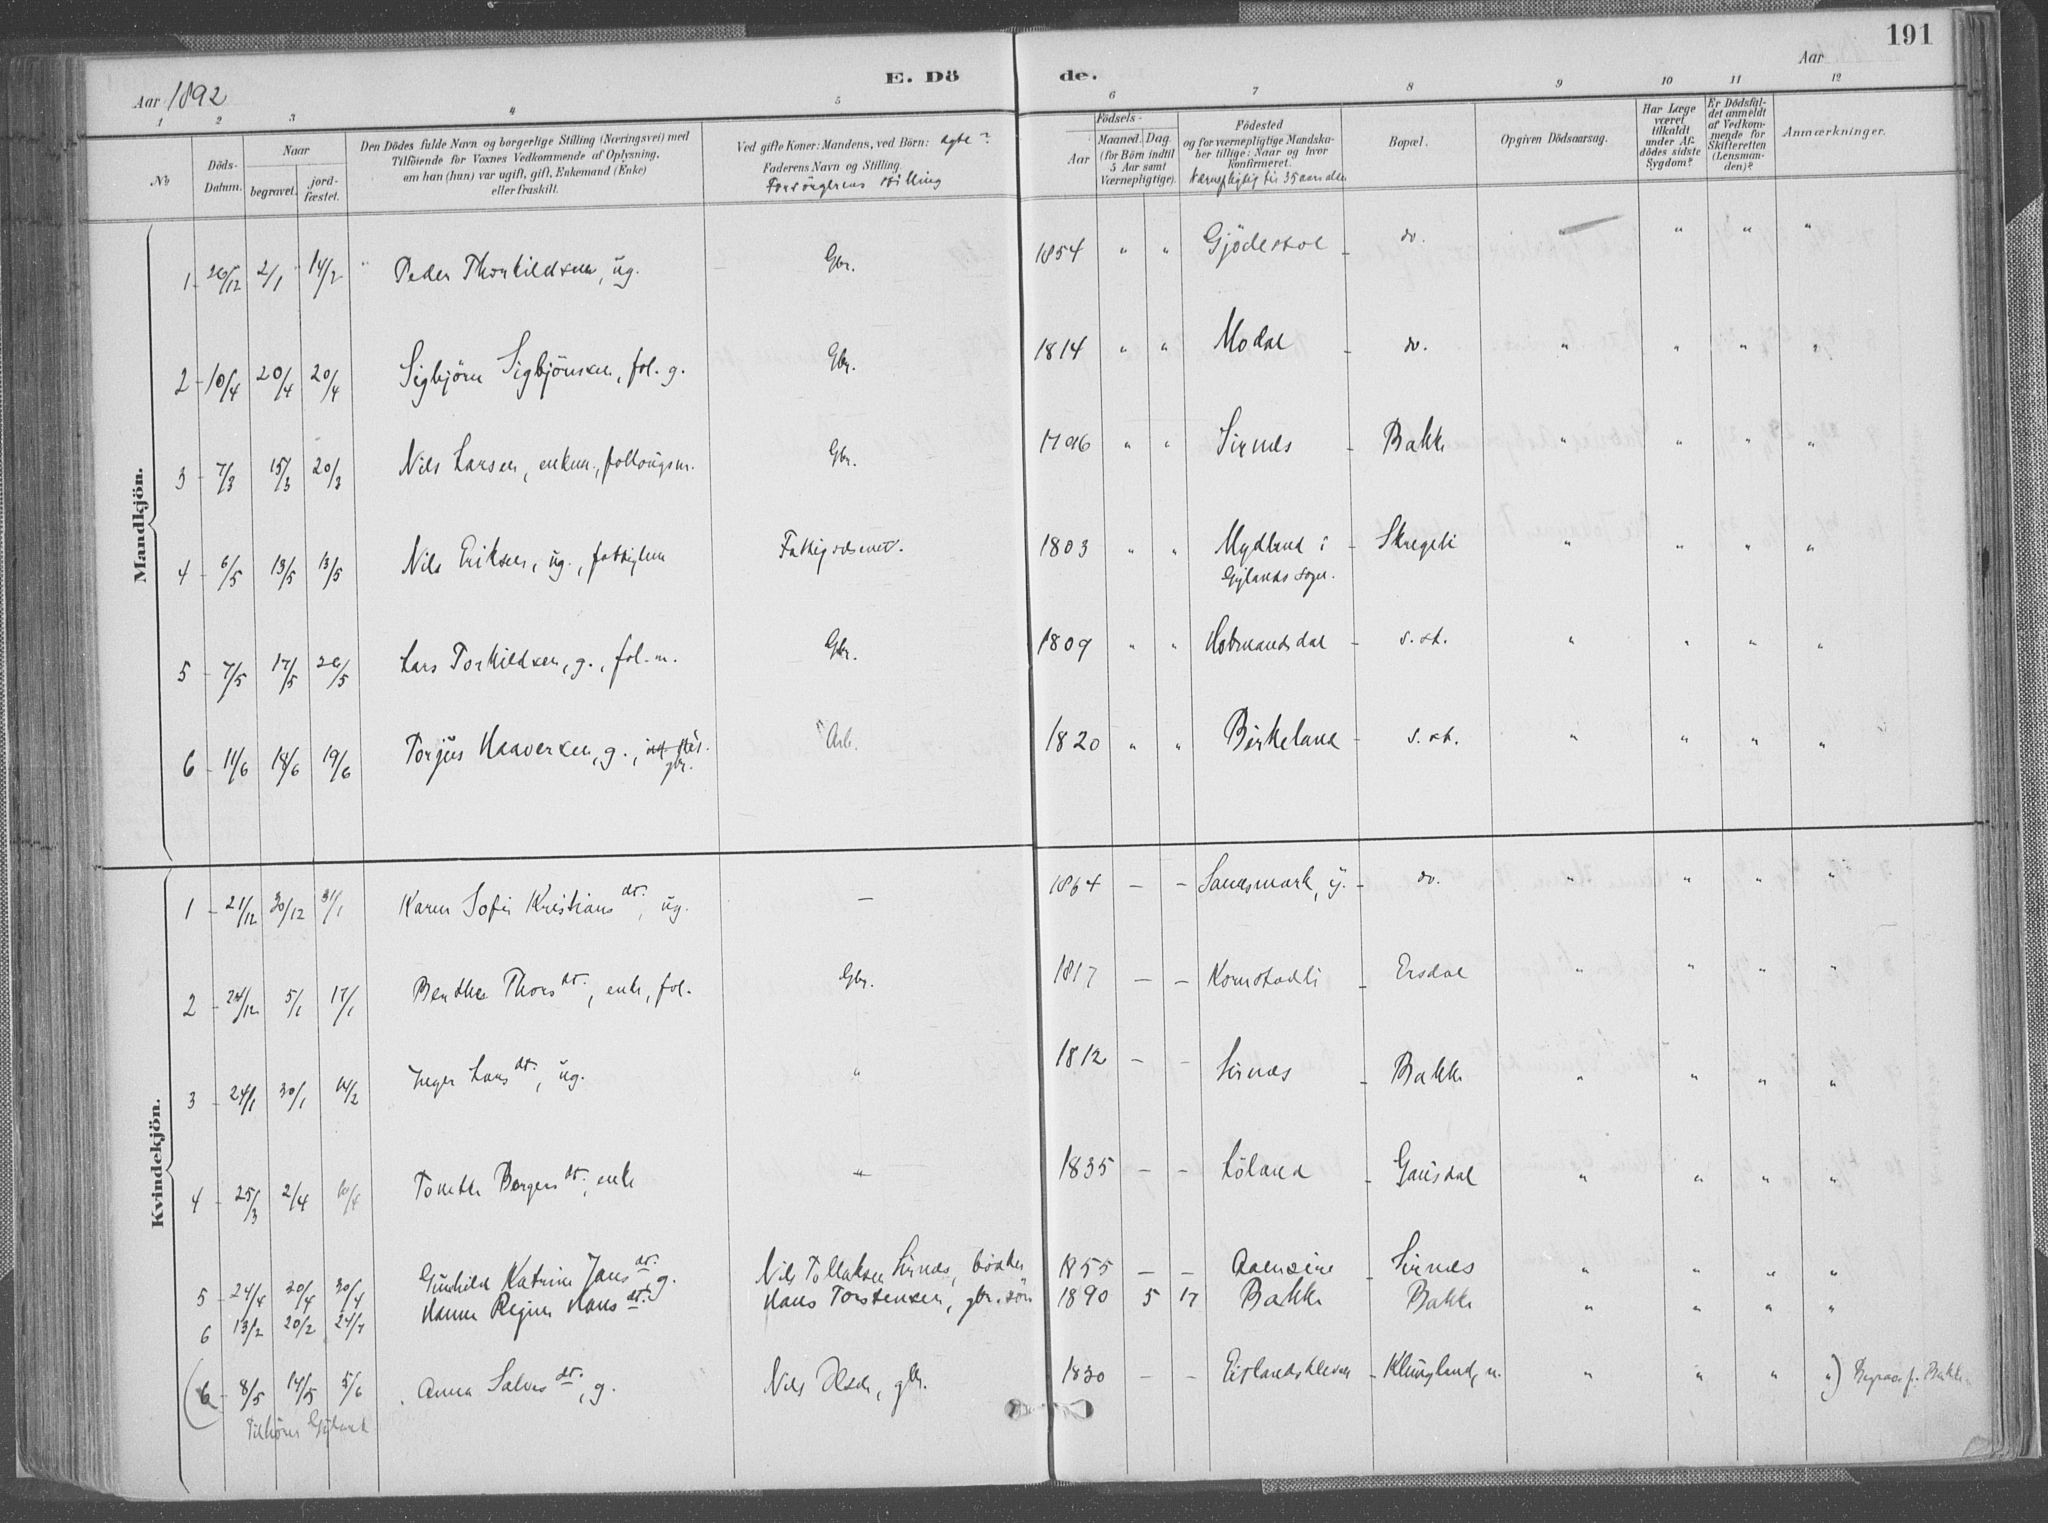 191
E. Dö de.
Aar 1892
Aar
1 2 3 4 5 6 7 8 9 10 11 12
№
Döds-Datum.
Naar
begravet.
jord-fæstet.
Den Dödes fulde Navn og borgerlige Stilling (Næringsvei) med
Tilföiende for Voxnes Vedkommende af Oplysning,
om han (hun) var ugift, gift, Enkemand (Enke)
eller fraskilt.
Ved gifte Koner: Mandens, ved Börn: ægte?
Faderens Navn og Stilling.
Forsörgerens stilling
Födsels-
Aar
Maaned. Dag.
(for Börn indtil
5 Aar samt
Værnepligtige).
Födested
og for værnepligtige Mandska-
ber tillige: Naar og hvor
konfirmeret.
Værnepligtig til 35 aars alder
Bopæl.
Opgiven Dödsaarsag.
Har Læge
været
tilkaldt
under Af-
dödes sidste
Sygdom?
Er Dödsfal-
det anmeldt
af Vedkom-
mende for
Skifteretten
(Lensman-
den)?
Anmærkninger.
Mandkjön.
1 - 26/12 2/1 14/2 " Peder Thorkildsen, ug. Gbr. 1854 " " Gjödestol - do. " " " "
2 - 10/4 20/4 20/4 Sigbjörn Sigbjörnsen, fol. g. Gbr. 1814 " " Modal - do. " " " "
3 - 7/3 15/3 20/3 Nils Larsen, enkem., follougsm. Gbr. 1796 " " Sirnes - Bakke " " " "
4 - 6/5 13/5 13/5 Nils Eriksen, ug., fattiglem Fattigvæsenet. 1803 " " Mydland i - Skregeli " " " "
Gylands sogn.
5 - 7/5 17/5 26/5 Lars Torkildsen, g., fol. m. Gbr. 1809 " " Hobmandsdal - s. st. " " " "
6 - 11/6 18/6 19/6 Torjus Haaversen, g., gbr. Arb. 1820 " " Birkeland - s. st. " " " "
Kvindekjön.
1 - 21/12 30/12 31/1 Karen Sofie Kristiansdt., ug. — 1864 — — Sandsmark, y. - do. " " " "
2 - 24/12 5/1 17/1 Benthe Thorsdt., enke, fol. Gbr. 1817 — — Kornstadli - Ersdal " " " "
3 - 24/1 30/1 14/2 Inger Larsdt., ug. " 1812 — — Sirnes - Bakke " " " "
4 - 25/3 2/4 10/4 Tonette Bergersdt., enke " 1835 — — Löland - Gausdal " " " "
5 - 24/4 30/4 30/4 Gunhild Katrine Jansdt. g. Nils Tollaksen Sirnes, bödker 1855 — — Aaensire - Sirnes " " " "
6 13/2 20/2 24/7 Hanne Regine Hansdt. Hans Torstensen, gbr. sön 1890 5 17 Bakke Bakke " " " "
(6 - 8/5 14/5 5/6 Anna Salvesdt., g. Nils Olsen, gbr. 1830 — — Eitlandskleven - Klungland, n. " " " ") Begravet p. Bakke
Tilhörer Gyland